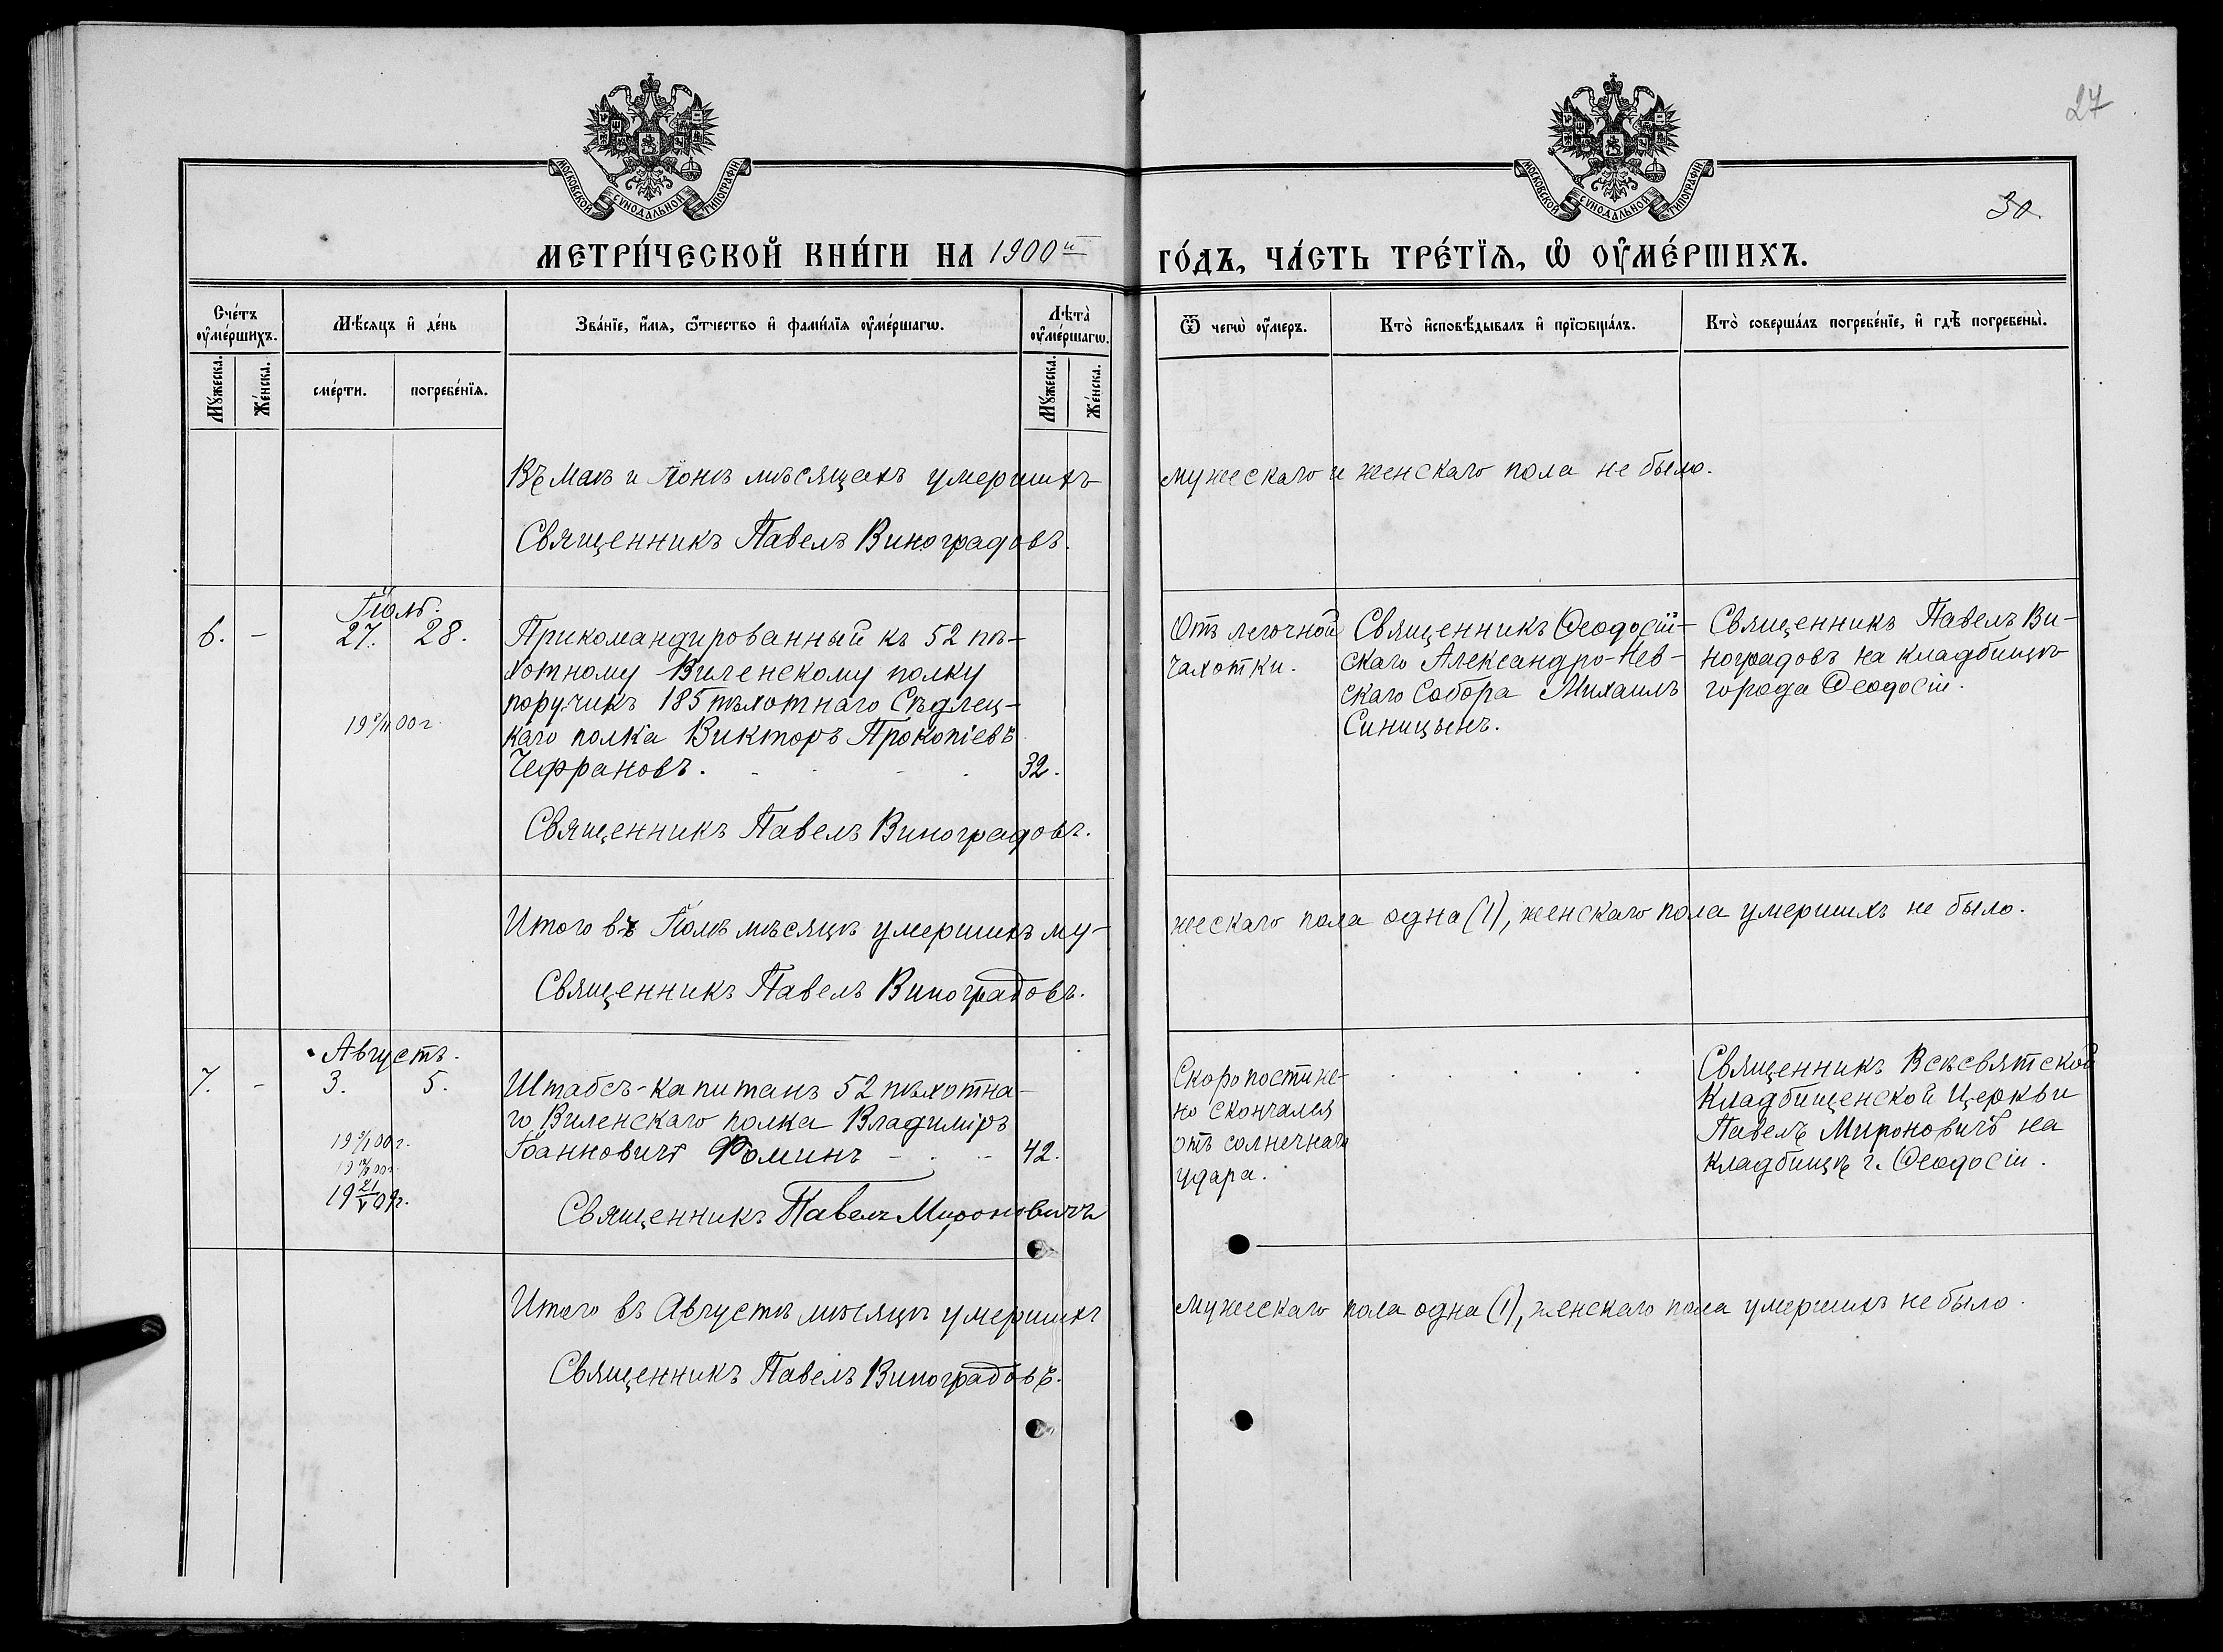 27
30.
МОСКОВСКОЙ СѴНОДАЛЬНОЙ ТИПОГРАФІИ
МОСКОВСКОЙ СѴНОДАЛЬНОЙ ТИПОГРАФІИ
МЕТРИ́ЧЕСКОЙ КНИ́ГИ НА 1900й
ГО́ДЪ, ЧА́СТЬ ТРЕ́ТЇѦ, Ѽ ОУ҆МЕ́РШИХЪ.
Сче́тъ оу҆ме́ршихъ.
Мꙋ́жеска.
Же́нска.
Мѣ́сяцъ и҆ де́нь
сме́рти.
погребе́нїѧ.
Зва́нїе, и҆́мя, ѻ҆́тчество и҆ фами́лїя оу҆ме́ршагѡ.
Лѣта̀ оу҆ме́ршагѡ.
Мꙋ́жеска.
Же́нска.
Ѿ чегѡ̀ оу҆́меръ.
Кто̀ и҆сповѣ́дывалъ и҆ прїѡбща́лъ.
Кто̀ соверша́лъ погребе́нїе, и҆ гдѣ̀ погребены̀.
Въ Маѣ и Іюнѣ мѣсяцахъ умершихъ
мужескаго и женскаго пола не было.
Священникъ Павелъ Виноградовъ.
Іюль.
6. - 27. 28.
Прикомандированный къ 52 пѣ-
хотному Виленскому полку
поручикъ 185 пѣхотнаго Сѣдлец-
каго полка Викторъ Прокопіевъ
Чефрановъ. 32.
Священникъ Павелъ Виноградовъ.
Отъ легочной
чахотки.
Священникъ Ѳеодосій-
скаго Александро-Нев-
скаго Собора Михаилъ
Синицынъ.
Священникъ Павелъ Ви-
ноградовъ на кладбищѣ
города Ѳеодосіи.
Итого въ Іюлѣ мѣсяцѣ умершихъ му-
жескаго пола одна (1), женскаго пола умершихъ не было.
Священникъ Павелъ Виноградовъ.
Августъ.
7. - 3. 5.
Штабсъ-капитанъ 52 пѣхотна-
го Виленскаго полка Владиміръ
Іоанновичъ Ѳоминъ - 42.
19 21/V 04г.
Священникъ Павелъ Мироновичъ
Скоропостиж-
но скончался
отъ солнечнаго
удара.
Священникъ Всѣсвятской
Кладбищенской Церкви
Павелъ Мироновичъ на
кладбищѣ г. Ѳеодосіи.
Итого въ Августѣ мѣсяцѣ умершихъ
мужескаго пола одна (1), женскаго пола умершихъ не было.
Священникъ Павелъ Виноградовъ.